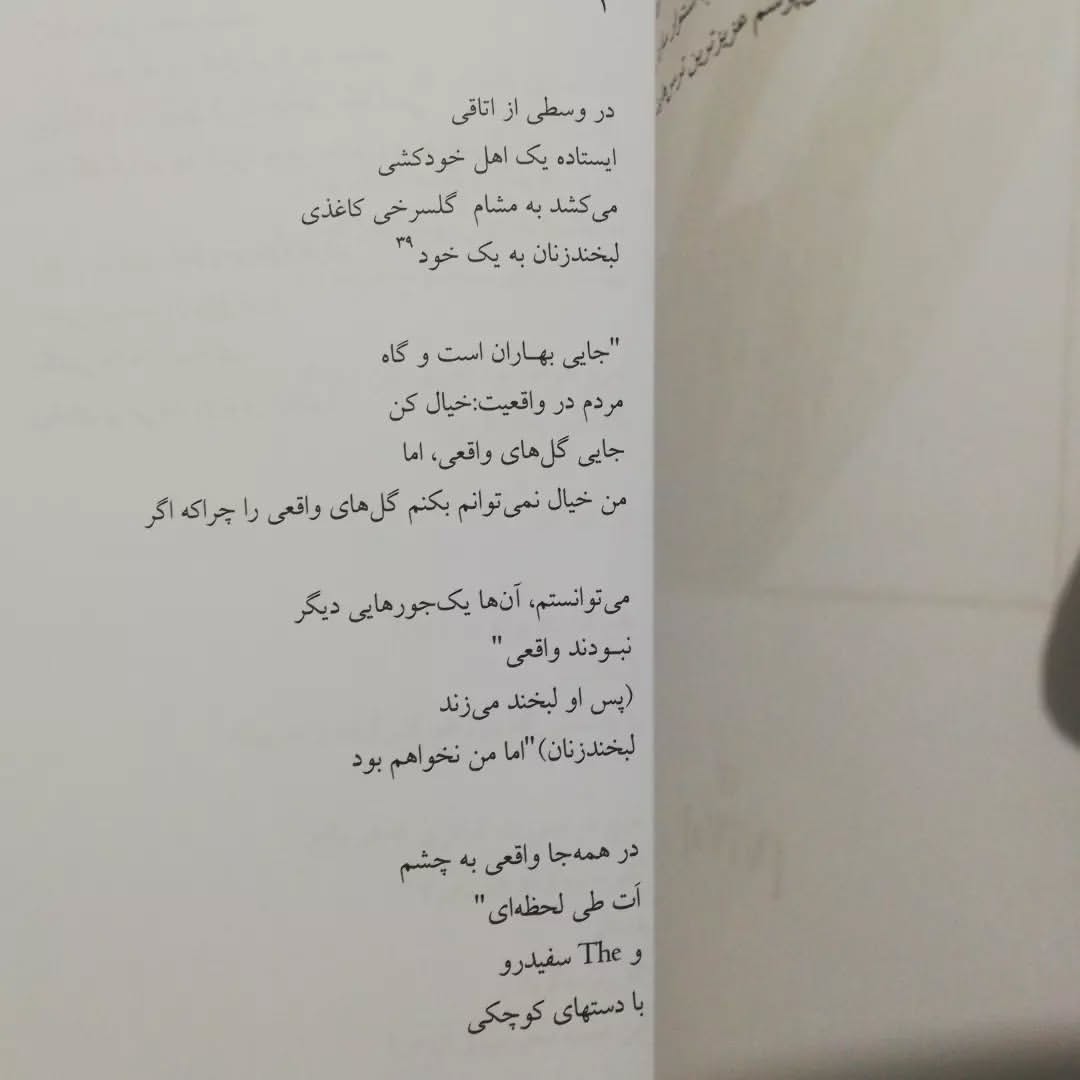 ۱
در وسطی از اتاقی
ایستاده یک اهل خودکشی
می‌کشد به مشام گلسرخی کاغذی
لبخندزنان به یک خود۳۹
"جایی بهاران است و گاه
مردم در واقعیت:خیال کن
جایی گل‌های واقعی، اما
من خیال نمی‌توانم بکنم گل‌های واقعی را چراکه اگر
می‌توانستم، آن‌ها یک‌جورهایی دیگر
نبودند واقعی"
(پس او لبخند می‌زند
لبخندزنان)"اما من نخواهم بود
در همه‌جا واقعی به چشم
اَت طی لحظه‌ای"
و The سفیدرو
با دستهای کوچکی
عزیزترین